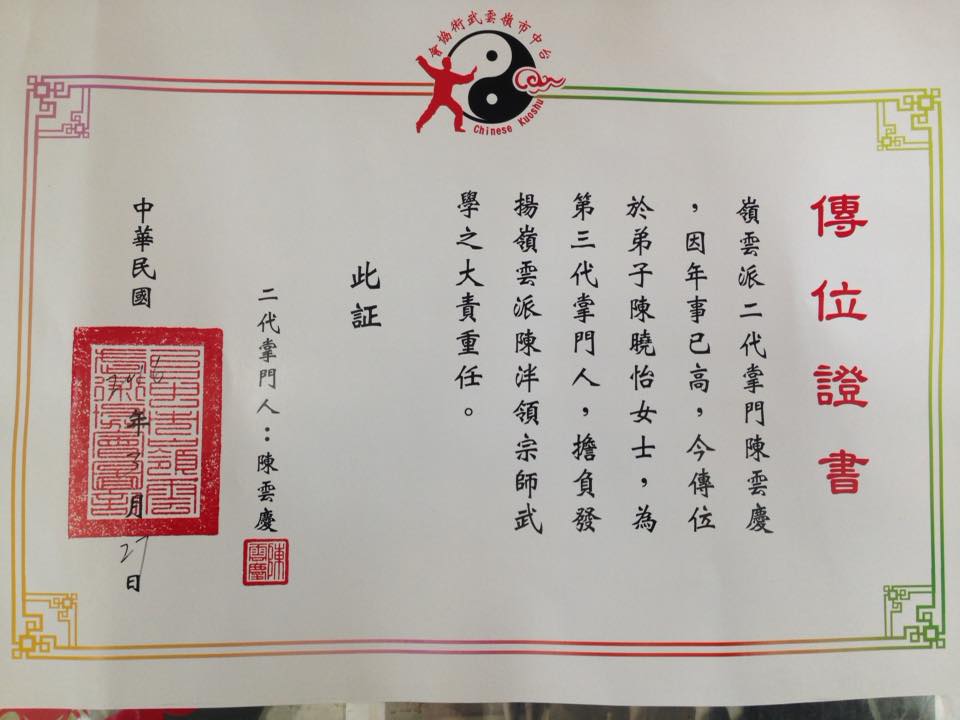 台中市嶺雲武術協會
Chinese Kuoshu
傳位證書
嶺雲派二代掌門陳雲慶
，因年事已高，今傳位
於弟子陳曉怡女士，為
第三代掌門人，擔負發
揚嶺雲派陳泮領宗師武
學之大責重任。
此証
二代掌門人：陳雲慶
陳雲慶
中華民國 年 3 月 27 日